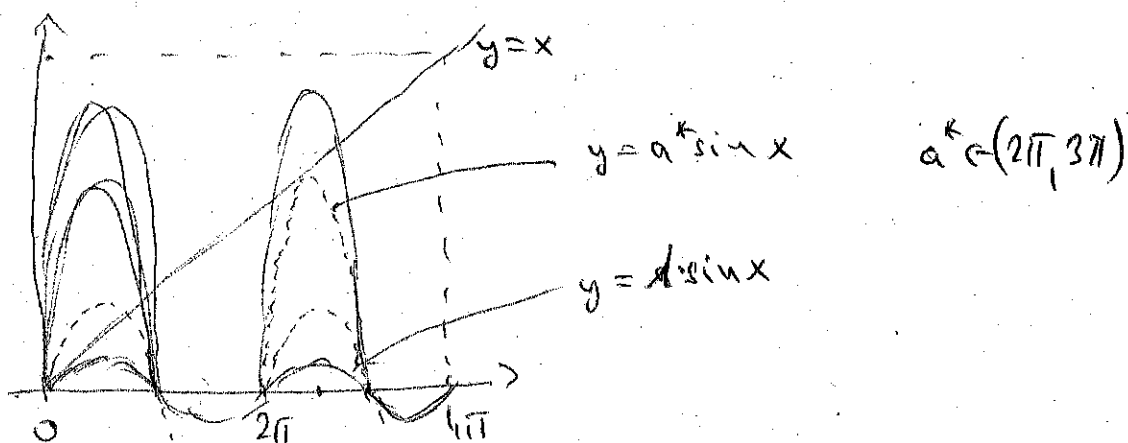 y = x
y = a* sin x a* ∈ (2π, 3π)
y = sin x
0 2π 4π